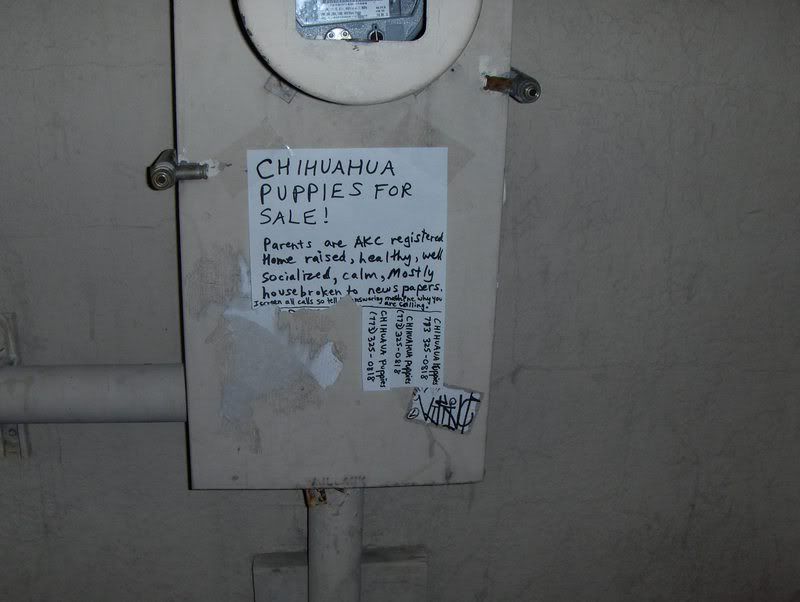 CHIHUAHUA
PUPPIES FOR
SALE!
Parents are AKC registered
Home raised, healthy, well
Socialized, calm, Mostly
housebroken to newspapers.
I screen all calls so tell answering machine why you
are calling.
CHIHUAVA Puppies
(773) 325-0818
CHIHUAHUA Puppies
(773) 325-0818
CHIHUAHUA Puppies
773 325-0818